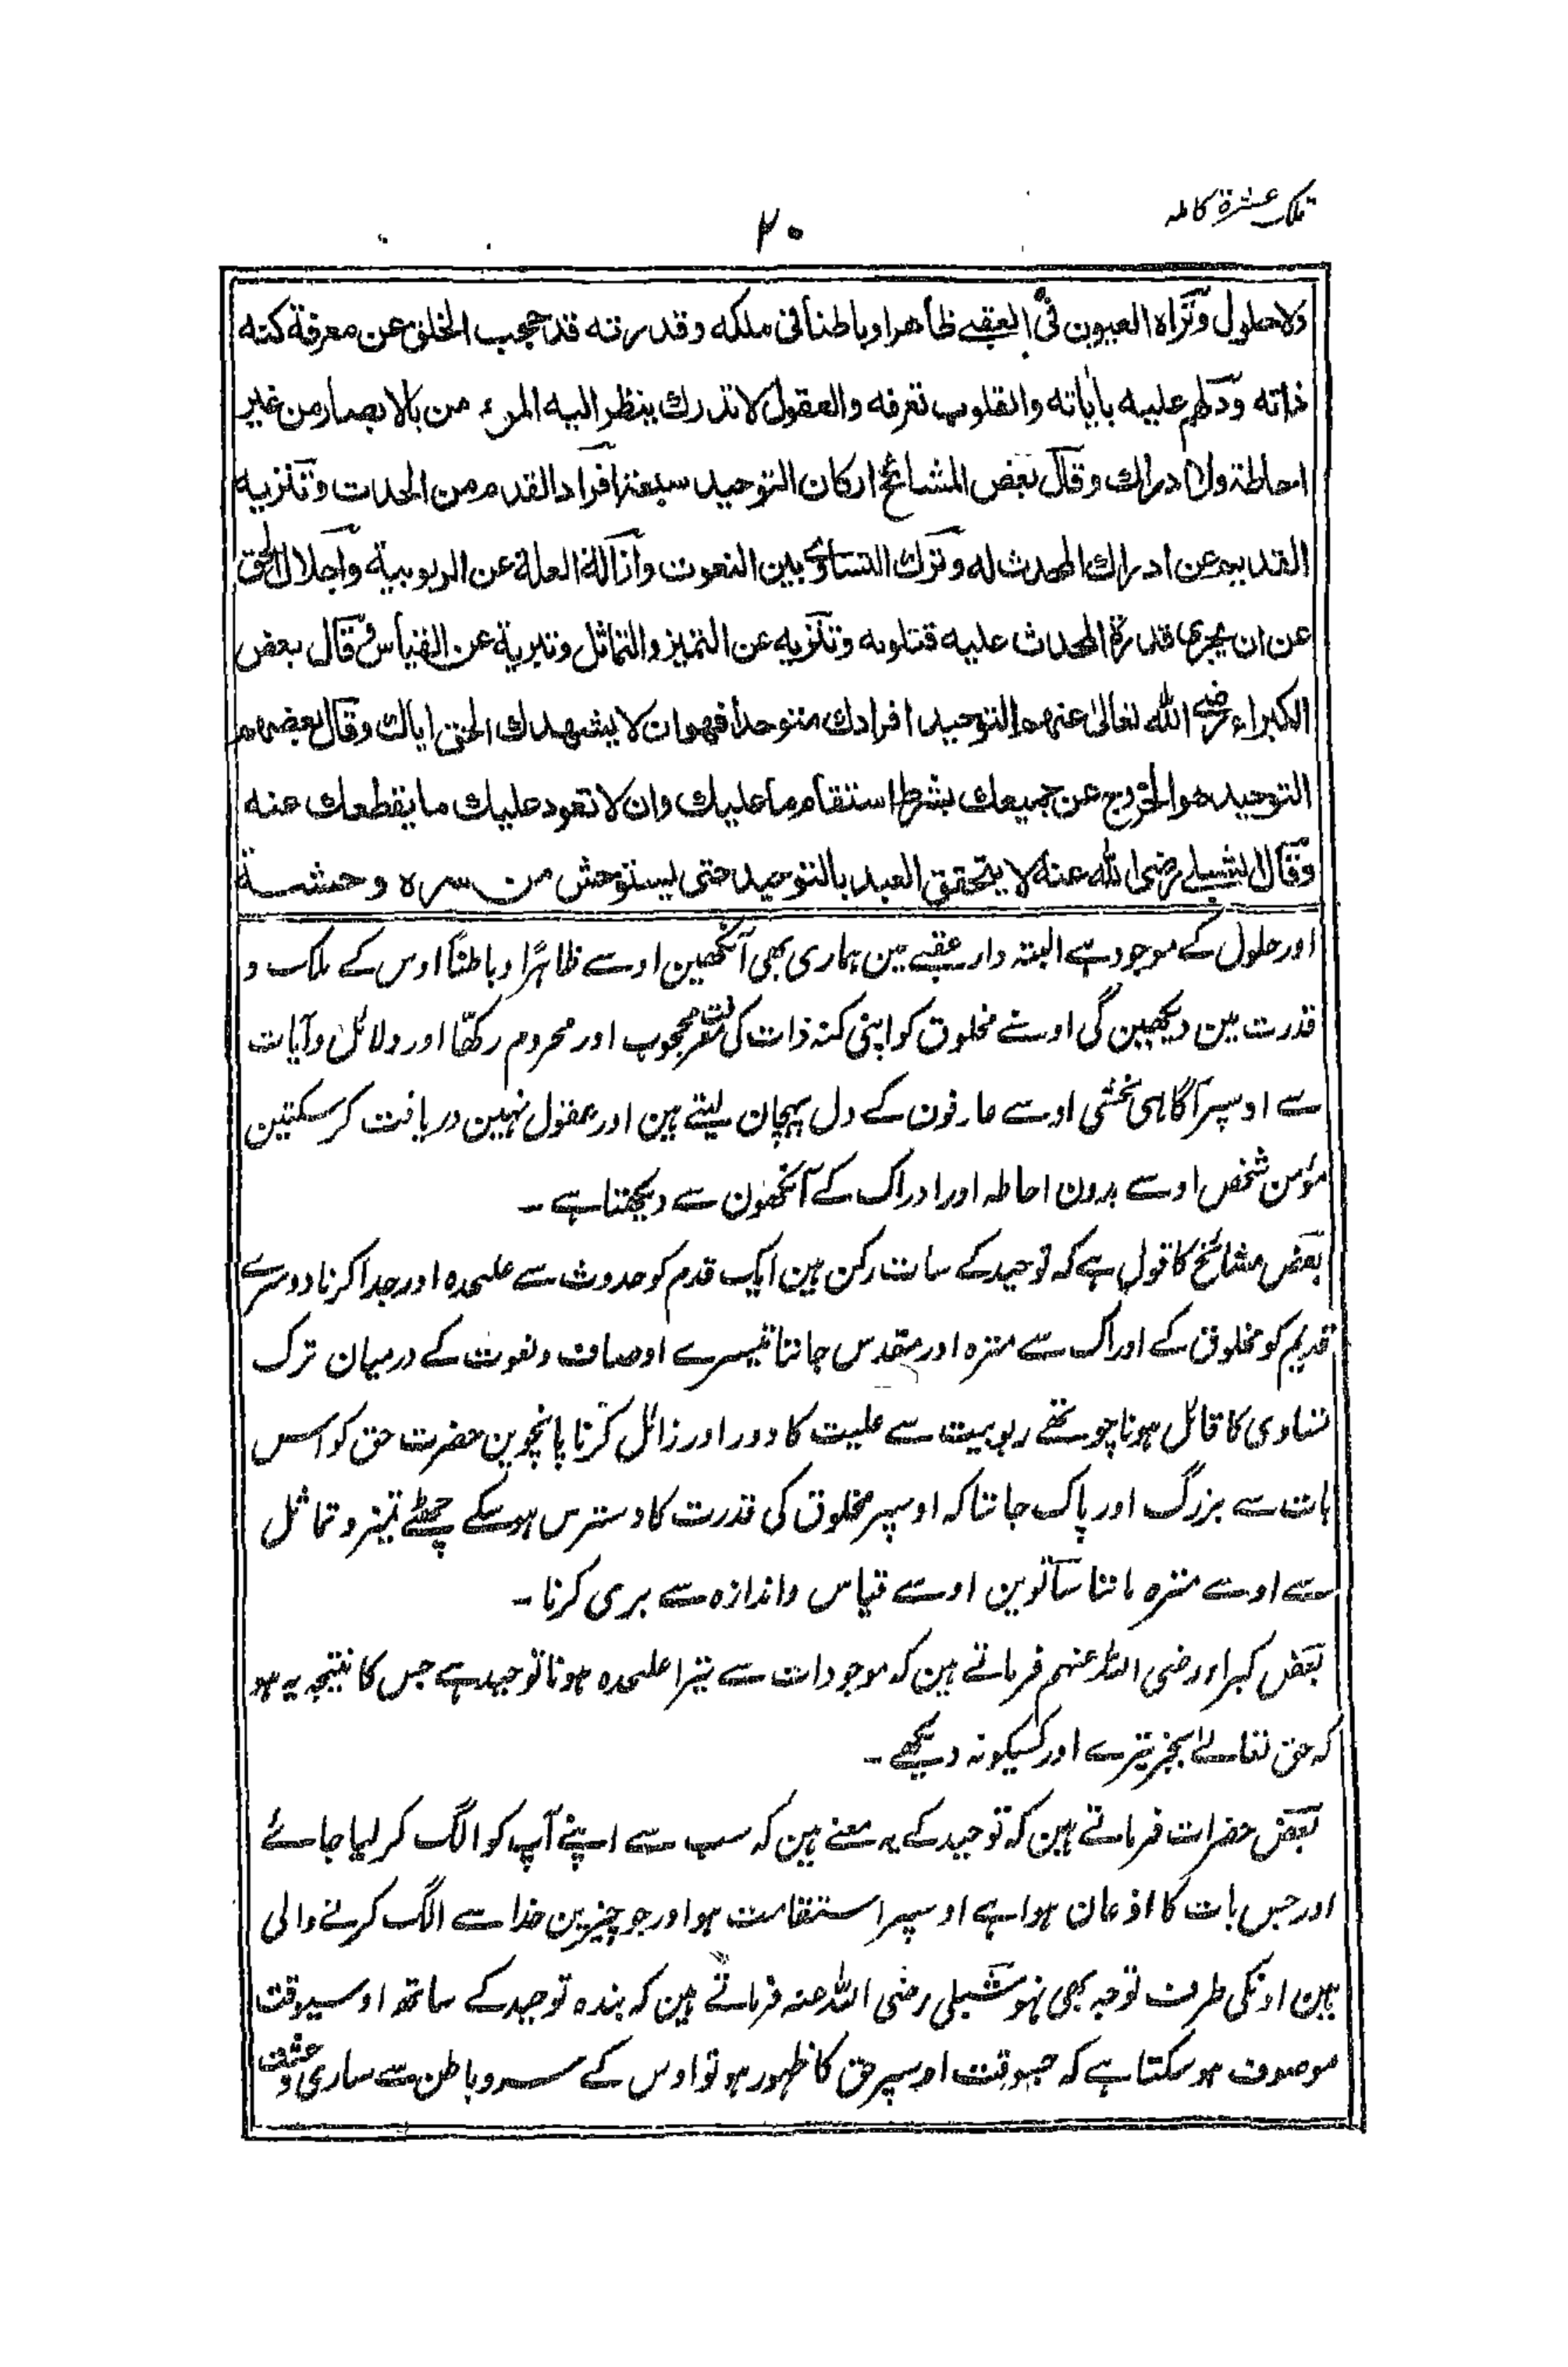 تلک عشرۃ کاملہ
۲۰
ولاحلول وتراه العيون فى العقبے ظاهرا وباطنا فى ملكه وقدرته قد حجب الخلق عن معرفة كنه
ذاته ودلهم عليه باٰياته والقلوب تعرفه والعقول لا تدرك ينظر اليه المؤمن بالابصار من غير
احاطة ولا ادراك وقال بعض المشائخ اركان التوحيد سبعة افراد القدم من الحدث وتنزيه
القديم عن ادراك المحدث له وترك التساوے بين النعوت وازالة العلة عن الربوبية واجلال الحق
عن ان يجرى قدرة المحدث عليه فتلونه وتنزيه عن التميز والتماثل وتبرية عن القياس وقال بعض
الكبراء رضى الله تعالىٰ عنهم التوحيد افرادك متوحدا فهو ان لا يشهدك الحق اياك وقال بعضهم
التوحيد هو الخروج عن جميعك بشرط استقام ما عليك وان لا تعود عليك ما يقطعك عنه
وقال الشبلے رضى الله عنه لا يتحقق العبد بالتوحيد حتى يستوحش من سره وحشة
اور حلول کے موجود ہے البتہ دار عقبے مین ہماری بھی آنکھین اوسے ظاہرًا و باطنًا اوس کے ملک و
قدرت مین دیکھین گی اوسنے مخلوق کو اپنی کنہ ذات کی معرفت سے محجوب اور محروم رکھا اور دلائل و آیات
سے اوسپر آگاہی بخشی اوسے عارفون کے دل پہچان لیتے ہین اور عقول نہین دریافت کرسکتین
مؤمن شخص اوسے بدون احاطہ اور ادراک کے آنکھون سے دیکھتا ہے ۔
بعض مشائخ کا قول ہے کہ توحید کے سات رکن ہین ایک قدم کو حدوث سے علیحدہ اور جدا کرنا دوسرے
قدیم کو مخلوق کے ادراک سے منزہ اور مقدس جاننا تیسرے اوصاف و نعوت کے درمیان ترک
تساوی کا قائل ہونا چوتھے ربوبیت سے علیت کا دور اور زائل کرنا پانچوین حضرت حق کو اس
بات سے بزرگ اور پاک جاننا کہ اوسپر مخلوق کی قدرت کا دسترس ہوسکے چھٹے تمیز و تماثل
سے اوسے منزہ ماننا ساتوین اوسے قیاس و اندازہ سے بری کرنا ۔
بعض کبراء رضی اللہ عنہم فرماتے ہین کہ موجودات سے تیرا علیحدہ ہونا توحید ہے جس کا نتیجہ یہ ہو
کہ حق تعالےٰ بجز تیرے اور کسیکو نہ دیکھے ۔
بعض حضرات فرماتے ہین کہ توحید کے یہ معنے ہین کہ سب سے اپنے آپ کو الگ کر لیا جائے
اور جس بات کا اذعان ہوا ہے اوسپر استقامت ہو اور جو چیزین خدا سے الگ کرنے والی
ہین اونکی طرف توجہ بھی نہو شبلی رضی اللہ عنہ فرماتے ہین کہ بندہ توحید کے ساتھ اوسیوقت
موصوف ہوسکتا ہے کہ جسوقت اوسپر حق کا ظہور ہو تو اوس کے سر و باطن سے ساری